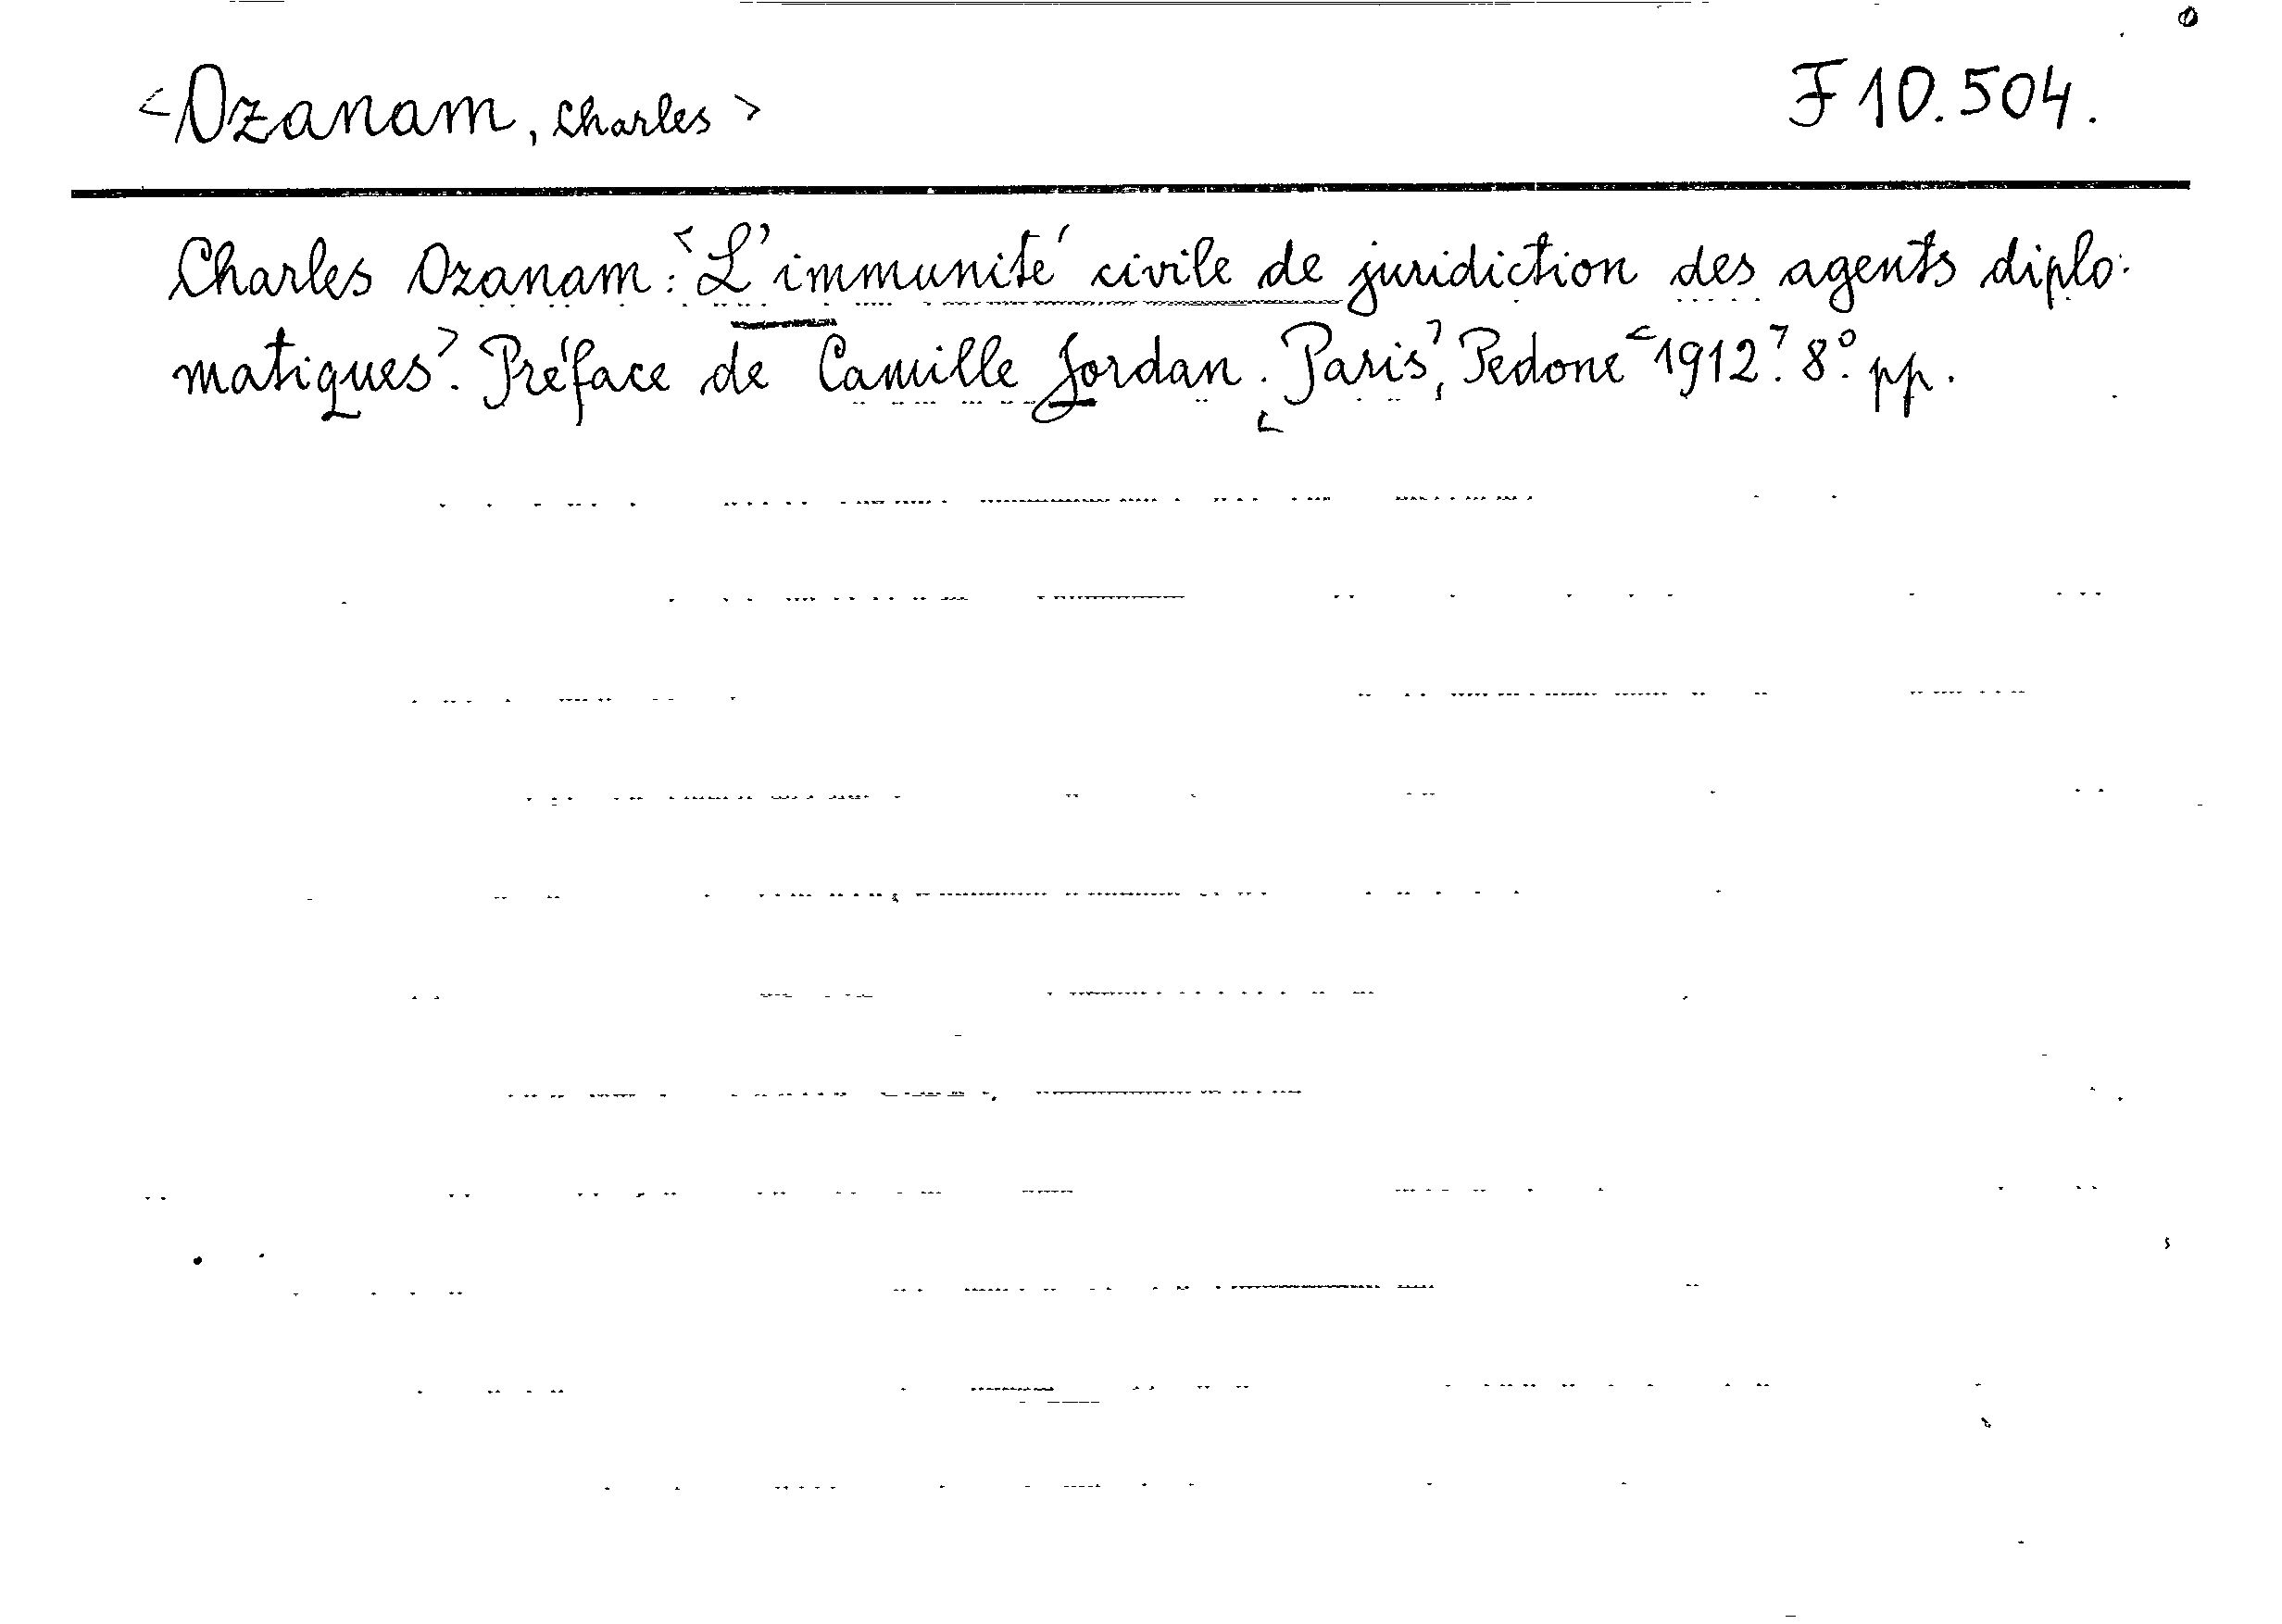 <Ozanam, Charles> F 10.504.
Charles Ozanam: <L'immunité civile de juridiction des agents diplo:
matiques>. Préface de Camille Jordan. <Paris>, Pedone <1912>. 8°. pp.